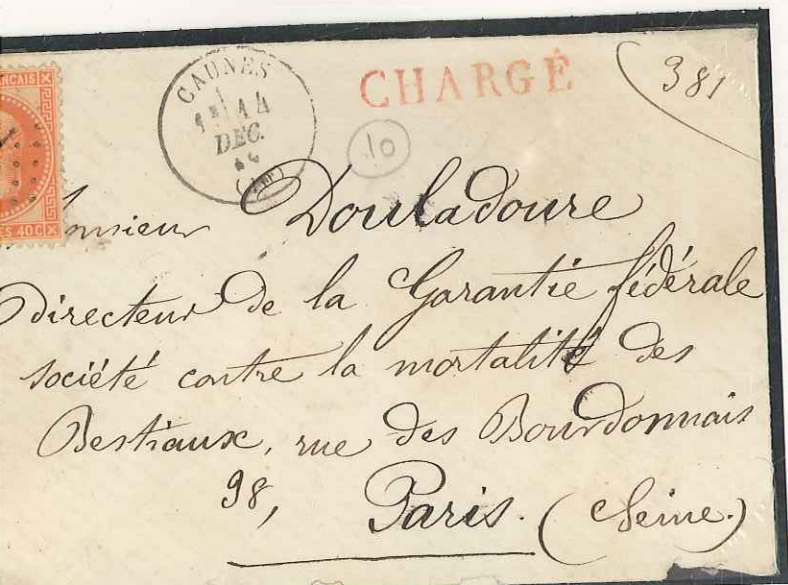 CAUNES
14
DEC.
CHARGÉ
381
10
40C
Monsieur Douladoure
Directeur de la Garantie fédérale
société contre la mortalité des
Bestiaux, rue des Bourdonnais
98, Paris. (Seine.)